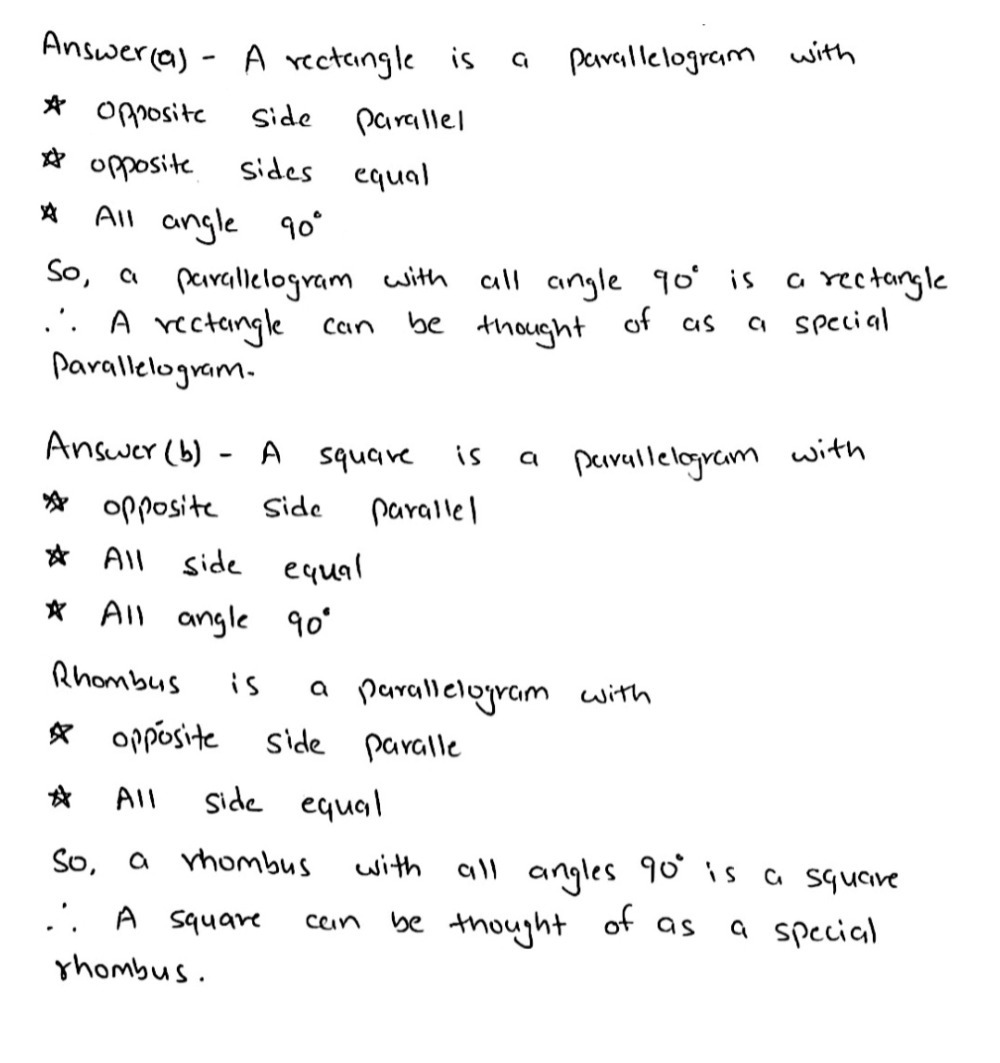 Answer(a) - A rectangle is a parallelogram with
☆ Opposite side parallel
☆ opposite sides equal
☆ All angle 90°
So, a parallelogram with all angle 90° is a rectangle
∴ A rectangle can be thought of as a special
Parallelogram.
Answer (b) - A square is a parallelogram with
☆ opposite side parallel
☆ All side equal
☆ All angle 90°
Rhombus is a parallelogram with
☆ opposite side paralle
☆ All side equal
So, a rhombus with all angles 90° is a square
∴ A square can be thought of as a special
rhombus.